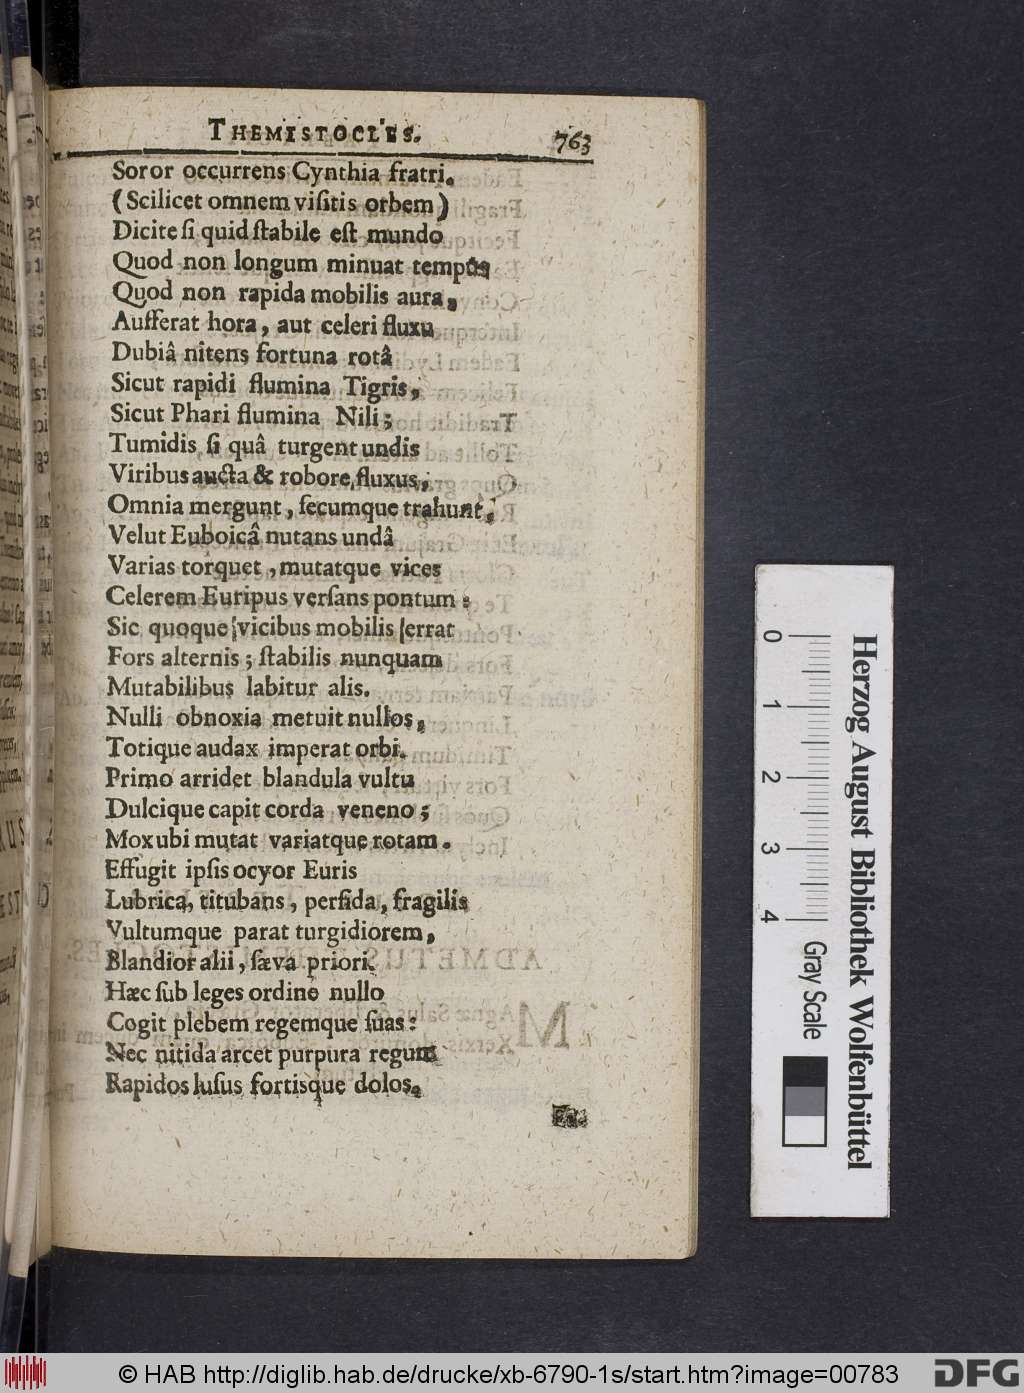 THEMISTOCLES. 763
Soror occurrens Cynthia fratri.
(Scilicet omnem viſitis orbem)
Dicite ſi quid ſtabile eſt mundo
Quod non longum minuat tempus
Quod non rapida mobilis aura,
Aufferat hora, aut celeri fluxu
Dubiâ nitens fortuna rotâ
Sicut rapidi flumina Tigris,
Sicut Phari flumina Nili;
Tumidis ſi quâ turgent undis
Viribus aucta & robore fluxus,
Omnia mergunt, ſecumque trahunt;
Velut Euboicâ nutans undâ
Varias torquet, mutatque vices
Celerem Euripus verſans pontum:
Sic quoque vicibus mobilis errat
Fors alternis; ſtabilis nunquam
Mutabilibus labitur alis.
Nulli obnoxia metuit nullos,
Totique audax imperat orbi.
Primo arridet blandula vultu
Dulcique capit corda veneno;
Mox ubi mutat variatque rotam.
Effugit ipſis ocyor Euris
Lubrica, titubans, perfida, fragilis
Vultumque parat turgidiorem,
Blandior alii, ſæva priori.
Hæc ſub leges ordine nullo
Cogit plebem regemque ſuas:
Nec nitida arcet purpura regum
Rapidos luſus fortisque dolos.
Herzog August Bibliothek Wolfenbüttel
0 1 2 3 4 Gray Scale
© HAB http://diglib.hab.de/drucke/xb-6790-1s/start.htm?image=00783
DFG